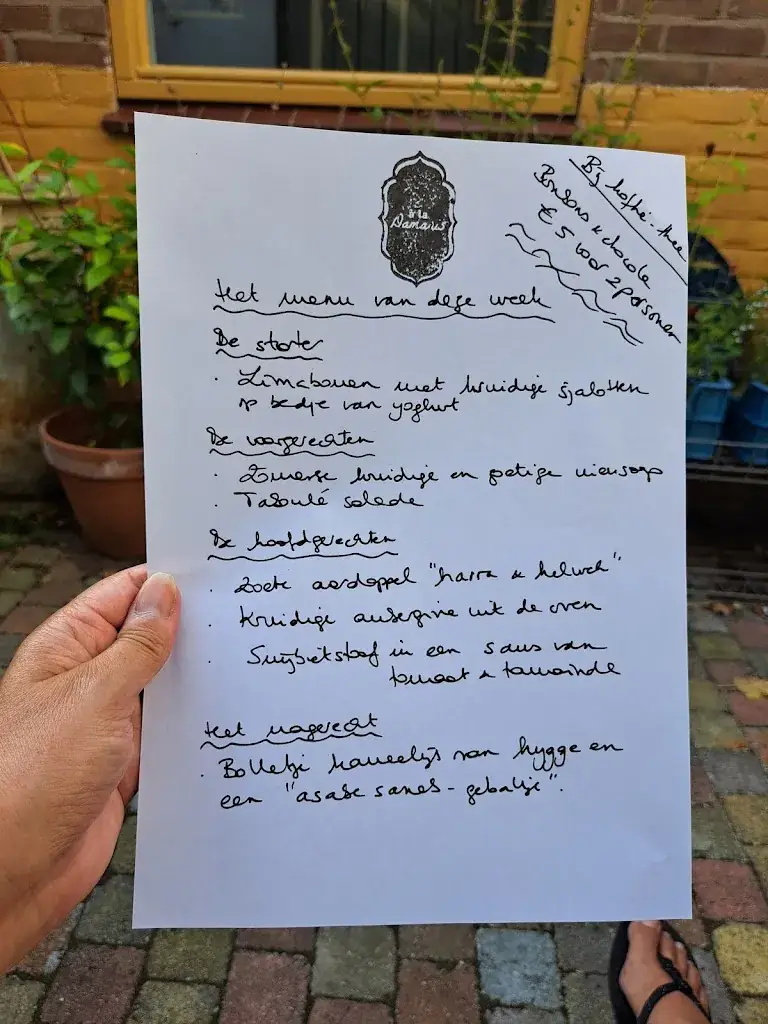 à la
Damaris
Bij koffie-thee
Bonbons & chocola
€ 5 voor 2 personen
Het menu van deze week
De starter
· Limabonen met kruidige sjalotten
op bedje van yoghurt
De voorgerechten
· Zomerse kruidige en pittige uiensoep
· Taboulé salade
De hoofdgerechten
· Zoete aardappel "harra & helweh"
· Kruidige aubergine uit de oven
· Snijbietstoof in een saus van
tomaat & tamarinde
Het nagerecht
· Bolletje kaneelijs van hygge en
een "asabe sanes-gebakje".